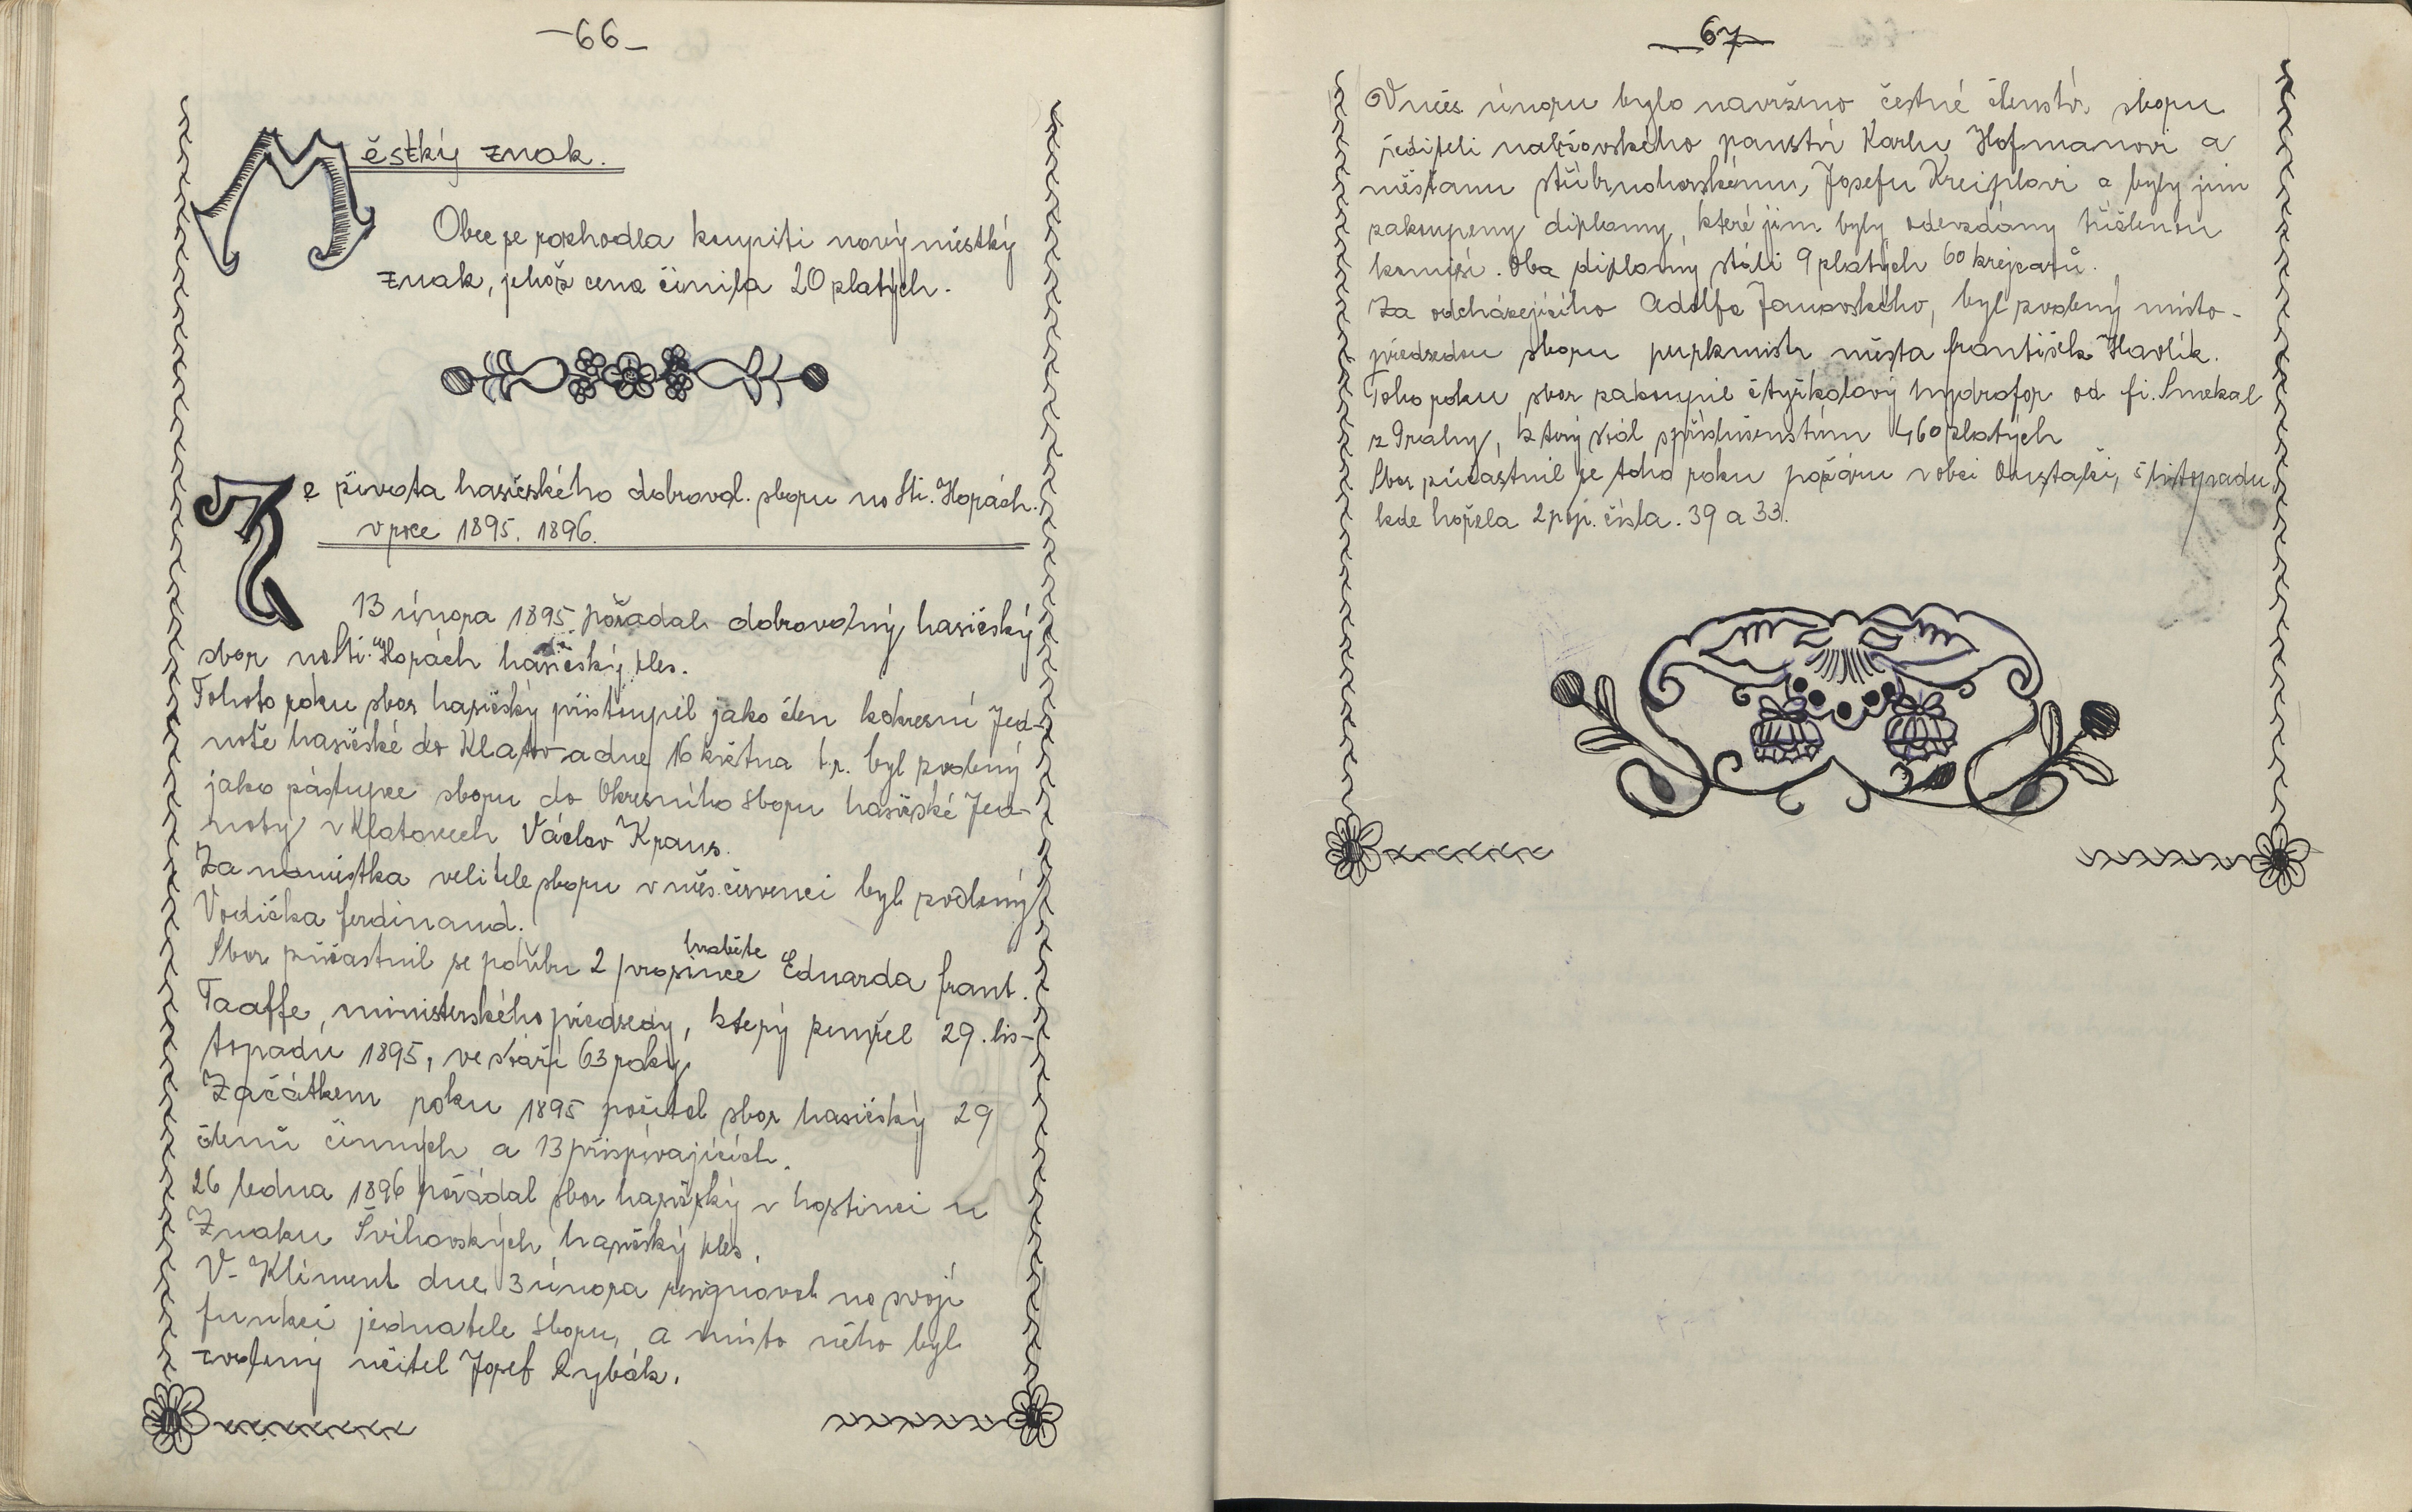 -66-
Městký znak.
Obec se rozhodla koupiti nový městký
znak, jehož cena činila 20 zlatých.
Ze života hasičského dobrovol. sboru na Stř. Horách.
v roce 1895. 1896.
13 února 1895. pořadal dobrovolný hasičský
sbor na Stř. Horách hasičský ples.
Tohoto roku sbor hasičský přistoupil jako člen k okresní Jed-
notě hasičské do Klatov a dne 16 května t.r. byl zvolený
jako zástupce sboru do Okresního sboru hasičské Jed-
noty v Klatovech Václav Kraus.
Za náměstka velitele sboru v měs. červenci byl zvolený
Vodička Ferdinand.
Sbor súčastnil se pohřbu 2 prosince hraběte Eduarda Frant.
Taaffe, ministerského předsedy, který zemřel 29. lis-
topadu 1895, ve stáří 63 roky.
Začátkem roku 1895 počítal sbor hasičský 29
členů činných a 13 přispívajících.
26 ledna 1896 pořádal sbor hasičský v hostinci u
Znaku Švihovských hasičský ples.
V. Kliment dne 3 února resignoval na svoji
funkci jednatele sboru, a místo něho byl
zvolený učitel Josef Rybák.
67
V měs. únoru bylo navrženo čestné členstv. sboru
řediteli nalžovského panství Karlu Hofmanovi a
měšťanu stříbrnohorskému, Josefu Kreiplovi a byly jim
zakoupeny diplomy, které jim byly odevzdány tříčlenou
komisí. Oba diplomy stáli 9 zlatých 60 krejcarů.
Za odcházejícího Adolfa Janovského, byl zvolený místo-
předsedou sboru purkmistr města František Havlík.
Toho roku sbor zakoupil čtyřkolový hydrofor od fi. Smekal
z Prahy, který stál s příslušenstvím 460 zlatých
Sbor súčastnil se toho roku požáru v obci 5 listopadu,
kde hořela 2 pop. čísla. 39 a 33.